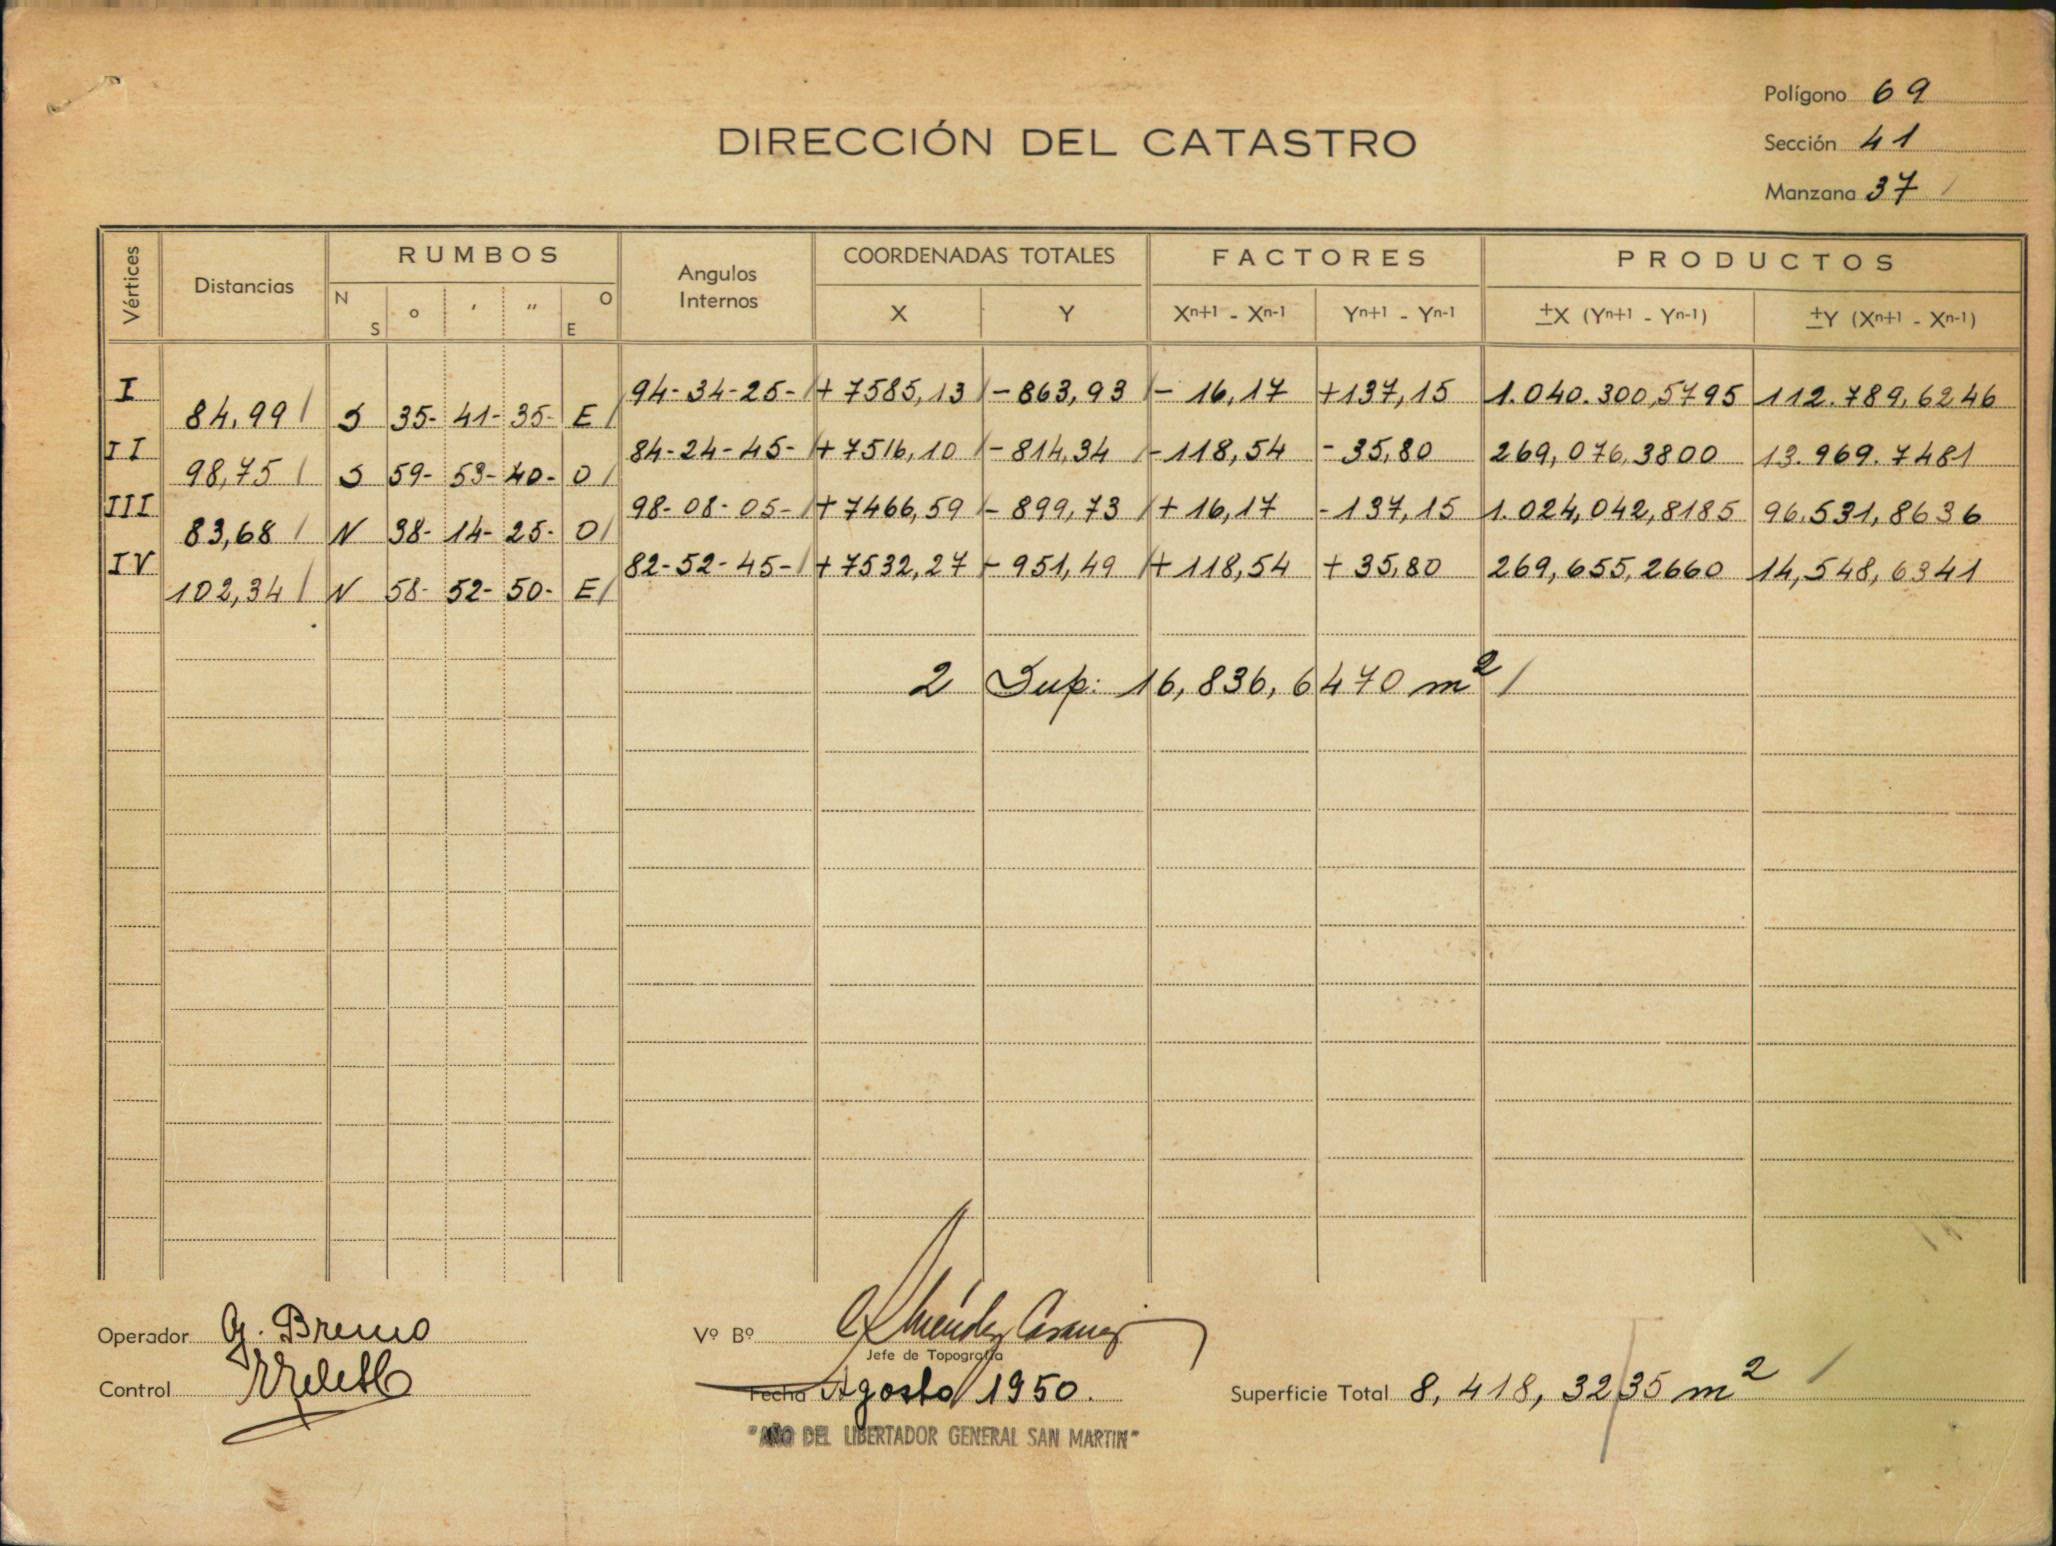 Polígono 69
DIRECCIÓN DEL CATASTRO
Sección 41
Manzana 37
Vértices Distancias RUMBOS Angulos Internos COORDENADAS TOTALES FACTORES PRODUCTOS
N S ° ' " O E X Y Xn+1 - Xn-1 Yn+1 - Yn-1 ±X (Yn+1 - Yn-1) ±Y (Xn+1 - Xn-1)
I 94-34-25- +7585,13 -863,93 - 16,17 +137,15 1.040.300,5795 112.789,6246
84,99 S 35- 41- 35- E
II 84-24-45- +7516,10 -814,34 -118,54 -35,80 269,076,3800 13.969.7481
98,75 S 59- 53- 40- O
III 98-08-05- +7466,59 - 899,73 + 16,17 -137,15 1.024,042,8185 96.531,8636
83,68 N 38- 14- 25- O
IV 82-52-45- +7532,27 - 951,49 + 118,54 + 35,80 269,655,2660 14,548,6341
102,34 N 58- 52- 50- E
2 Sup: 16,836,6470 m²
Operador G. Bremo
Vº Bº
Jefe de Topografía
Control
Fecha Agosto 1950.
Superficie Total 8,418,3235 m²
"AÑO DEL LIBERTADOR GENERAL SAN MARTIN"